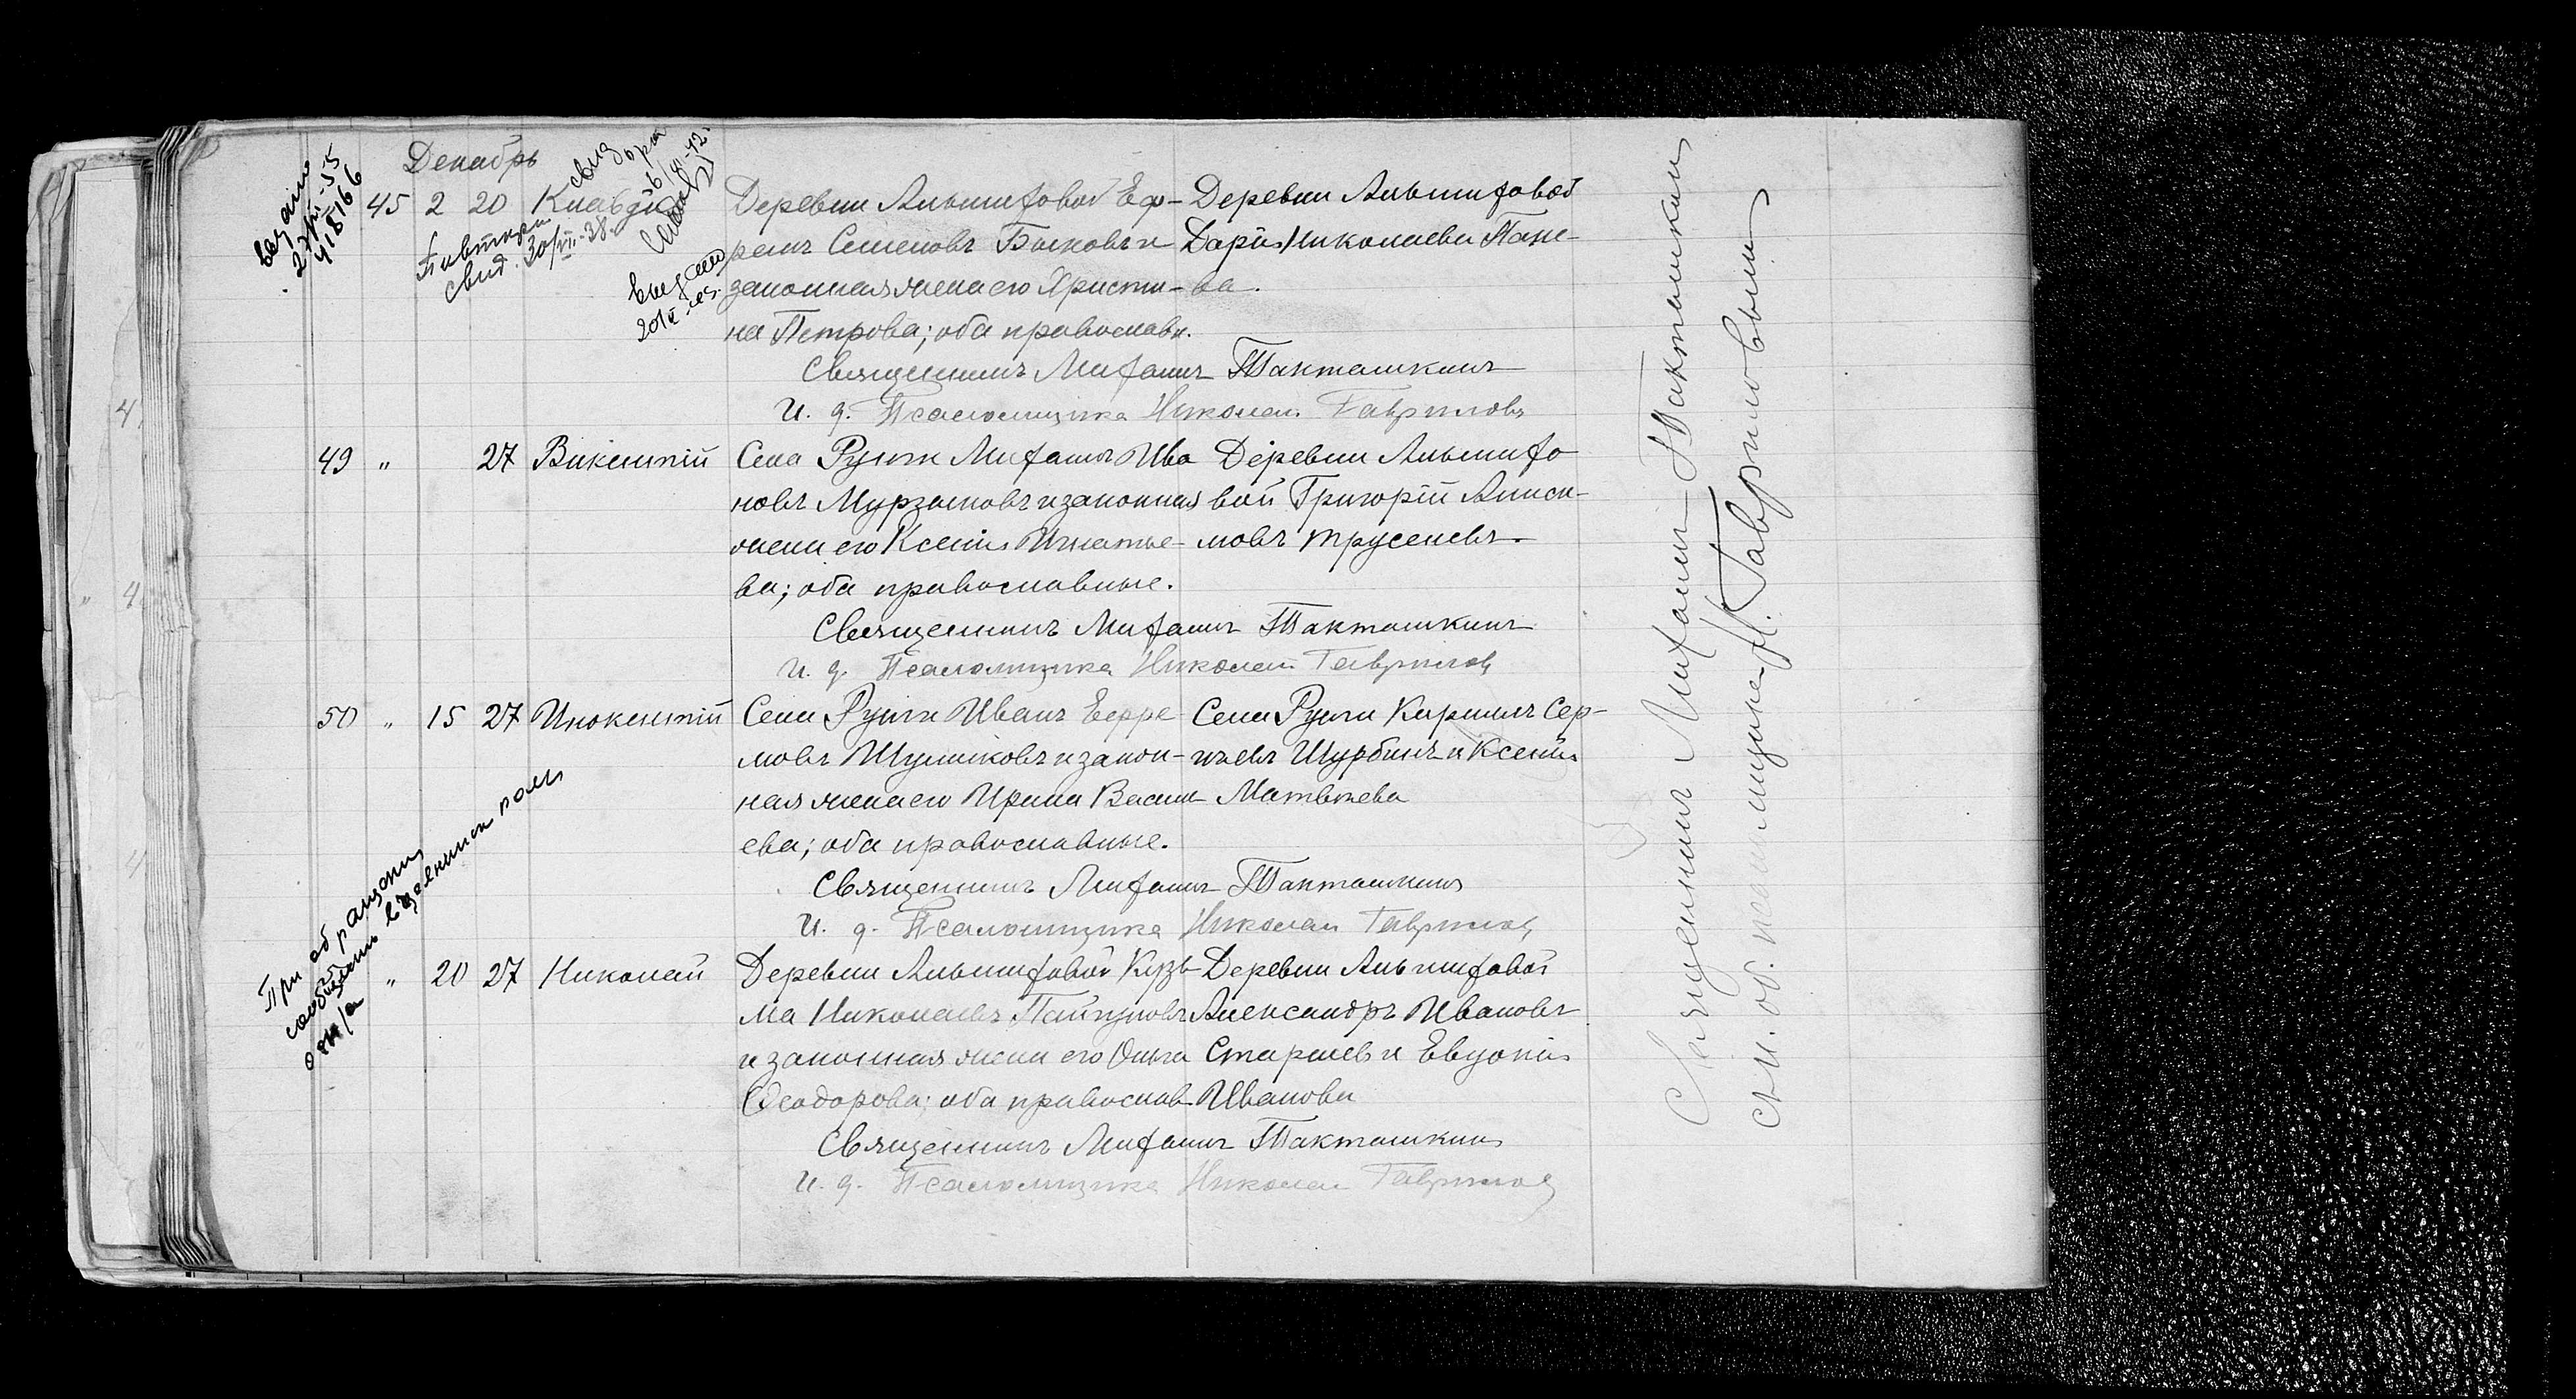 Декабрь
45 2 20 Клавдiя
Деревни Альшиховой Еф-
ремъ Семеновъ Быковъ и
законная жена его Христи-
на Петрова; оба православн.
Деревни Альшиховой
Дарiя Николаева Пане-
ва.
Священникъ Михаилъ Такташкинъ
И. д. Псаломщика Николай Гавриловъ
Повторн
свид. 30/VII-38.
49 " 27 Викентiй
Села Рунги Михаилъ Ива
новъ Мурзаковъ и законная
жена его Ксенiя Игнатье-
ва; оба православные.
Деревни Альшихо
вой Григорiй Аниси-
мовъ Трусеневъ.
Священникъ Михаилъ Такташкинъ
И. д. Псаломщика Николай Гавриловъ
50 " 15 27 Инокентiй
Села Рунги Иванъ Ефре
мовъ Шумиковъ и закон-
ная жена его Ирина Василь
ева; оба православные.
Села Рунги Кириллъ Сер-
гѣевъ Шурбинъ и Ксенiя
Матвѣева
Священникъ Михаилъ Такташкинъ
И. д. Псаломщика Николай Гавриловъ
При обращении
сообщить
" 20 27 Николай
Деревни Альшиховой Кузь-
ма Николаевъ Пайгуновъ
и законная жена его Ольга
Ѳеодорова; оба православ
Деревни Альшиховой
Александръ Ивановъ
Старшевъ и Евдокiя
Иванова
Священникъ Михаилъ Такташкинъ
И. д. Псаломщика Николай Гавриловъ
Священникъ Михаилъ Такташкинъ
съ и. об. псаломщика Н. Гавриловымъ